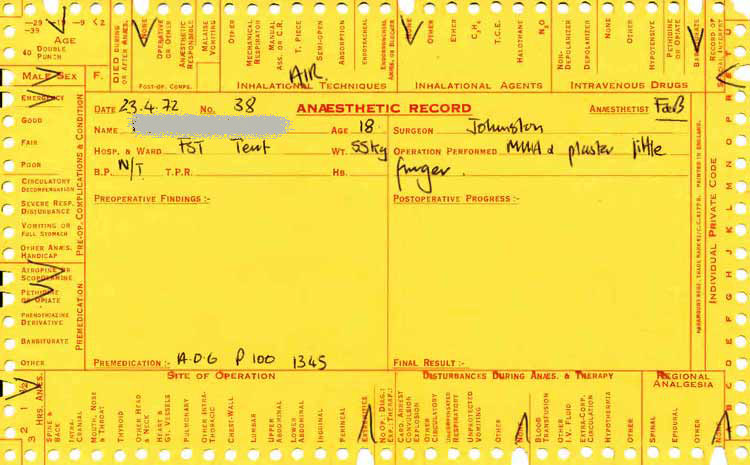 -29 -19 -9 <2
-39
40 DOUBLE PUNCH
AGE
DIED DURING OR AFTER ANÆS.
NONE
OPERATIVE OR OTHER
ANÆSTHETIC RESPONSIBLE
MALAISE VOMITING
OTHER
MECHANICAL RESPIRATOR
MANUAL ASS. OR C.R.
T. PIECE
SEMI-OPEN
ABSORPTION
ENDOTRACHEAL
NONE
OTHER
ETHER
C₂H₄
T.C.E.
HALOTHANE
N₂O
NON-DEPOLARIZER
DEPOLARIZER
NONE
OTHER
HYPOTENSIVE
PETHIDINE OR OPIATE
RECORD OF
MALE SEX F.
POST-OP. COMPS.
AIR.
INHALATIONAL TECHNIQUES
INHALATIONAL AGENTS
INTRAVENOUS DRUGS
DATE 23.4.72 NO. 38 ANÆSTHETIC RECORD ANÆSTHETIST
NAME AGE 18 SURGEON Johnston
HOSP. & WARD FST Tent WT. 55kg OPERATION PERFORMED MUA & plaster little
B.P. N/T T.P.R. HB. finger.
PREOPERATIVE FINDINGS :- POSTOPERATIVE PROGRESS :-
PREMEDICATION :- A.0.6 P 100 1345 FINAL RESULT :-
PRE-OP. COMPLICATIONS & CONDITION
EMERGENCY
GOOD
FAIR
POOR
CIRCULATORY DECOMPENSATION
SEVERE RESP. DISTURBANCE
VOMITING OR FULL STOMACH
OTHER ANÆS. HANDICAP
PREMEDICATION
ATROPINE OR SCOPOLAMINE
PETHIDINE OR OPIATE
PHENOTHIAZINE DERIVATIVE
BARBITURATE
OTHER
INDIVIDUAL PRIVATE CODE
PRINTED IN ENGLAND.
SITE OF OPERATION
DISTURBANCES DURING ANÆS. & THERAPY
REGIONAL ANALGESIA
3 2 1 ½
HRS. ANÆS.
SPINE & BACK
INTRA-CRANIAL
MOUTH, NOSE & THROAT
THYROID
OTHER HEAD & NECK
HEART & GT. VESSELS
PULMONARY
OTHER INTRA-THORACIC
CHEST-WALL
LUMBAR
UPPER ABDOMINAL
LOWER ABDOMINAL
INGUINAL
PERINEAL
EXTREMITIES
CARD. ARREST CONVULSION EXPLOSION
OTHER CIRCULATORY
RESPIRATORY
UNPROTECTED VOMITING
OTHER
NONE
BLOOD TRANSFUSION
OTHER I.V. FLUID
EXTRA-CORP. CIRCULATION
HYPOTHERMIA
OTHER
SPINAL
EPIDURAL
OTHER
NONE